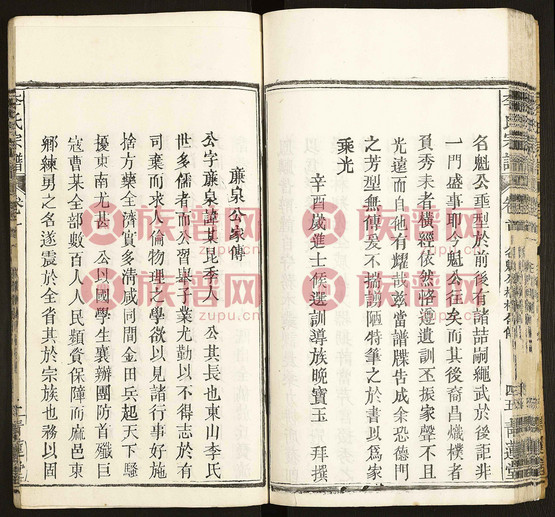 名魁公垂型於前後有諸喆嗣繩武於後詎非
一門盛事即今魁公往矣而其後裔昌熾樸者
負秀耒者橫經依然恪遵遺訓丕振家聲不且
光遠而自他有耀哉茲當譜牒告成余恐德門
之芳型無傳爰不揣謭陋特筆之於書以爲家
乘光
辛酉歲進士候選訓導族晚寶玉 拜撰
李氏宗譜
四五
廉泉公家傳
公字廉泉諱某昆季人 公其長也東山李氏
世多儒者而公習舉子業尤勤以不得志於有
司棄而求人倫物理之學欲以見諸行事好施
捨方藥全濟實多清咸同間金田兵起天下騷
擾東南尤甚 公以國學生襄辦團防首殲巨
寇曹某全部數百人人民頼資保障而麻邑東
鄉練勇之名遂震於全省其於宗族也務以固
李氏宗譜
族譜网
zupu.cn